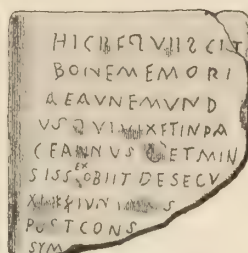 HICREQVIISCIT
BONEMEMORI
AEAVNEMVND
VS QVI VI XETINPA
CEANNVS ETMIN
SISS EX OBIIT DESECV
IVN S
POSTCONS
SYM